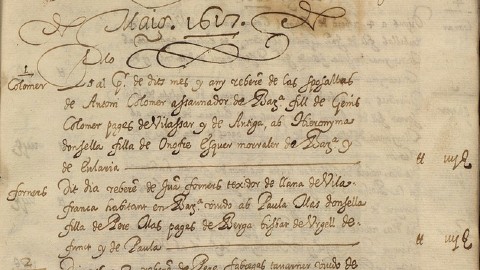 de Maio. 1617.
Dilo
1
Colomer
al p.r de dito mes y any reberé de las sposallas
de Antoni Colomer assaunador de Barz.ª fill de
Colomer pages de Vilassar y de Antiga, ab Hieronyma
donsella filla de Onofre Esquer morraler de Barz.ª y
de Eularia
tt iiij ß
forners
Dit dia reberé de Juā forners texidor de llana de Vila
franca habitant en Barz.ª viudo ab Paula Mas donsella
filla de Pere Mas pages de Berga bisbat de Urgell de
funt y de Paula
tt iiij ß
2
reberé de Pere fabregas tauarner viudo de